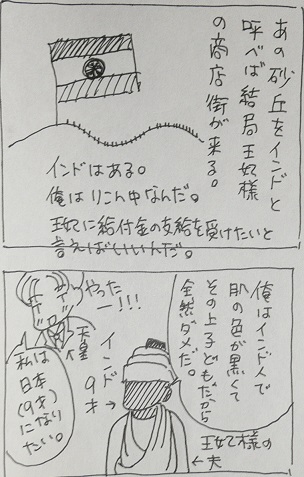 あの砂丘をインドと
呼べば結局王妃様
の商店街が来る。
インドはある。
俺はりこん中なんだ。
王妃に給付金の支給を受けたいと
言えばいいんだ。
俺はインド人で
肌の色が黒くて
その上子どもだから
全然ダメだ。
王妃様の
←夫
インド
9才→
やった
ー!!!
天皇
私は
日本
(9才)
になり
たい。